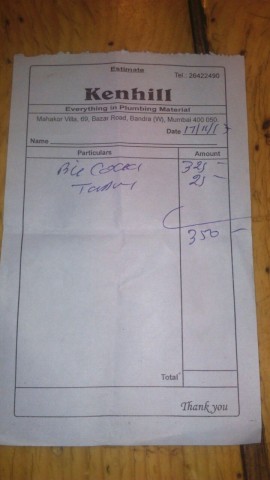 Estimate
Tel.: 26422496
Kenhill
Everything in Plumbing Material
Mahakar Villa, 69, Bazar Road, Bandra (W), Mumbai 400 050.
Date 17/11/17
Name
Particulars Amount
325 -
25 -
350 -
Total
Thank you